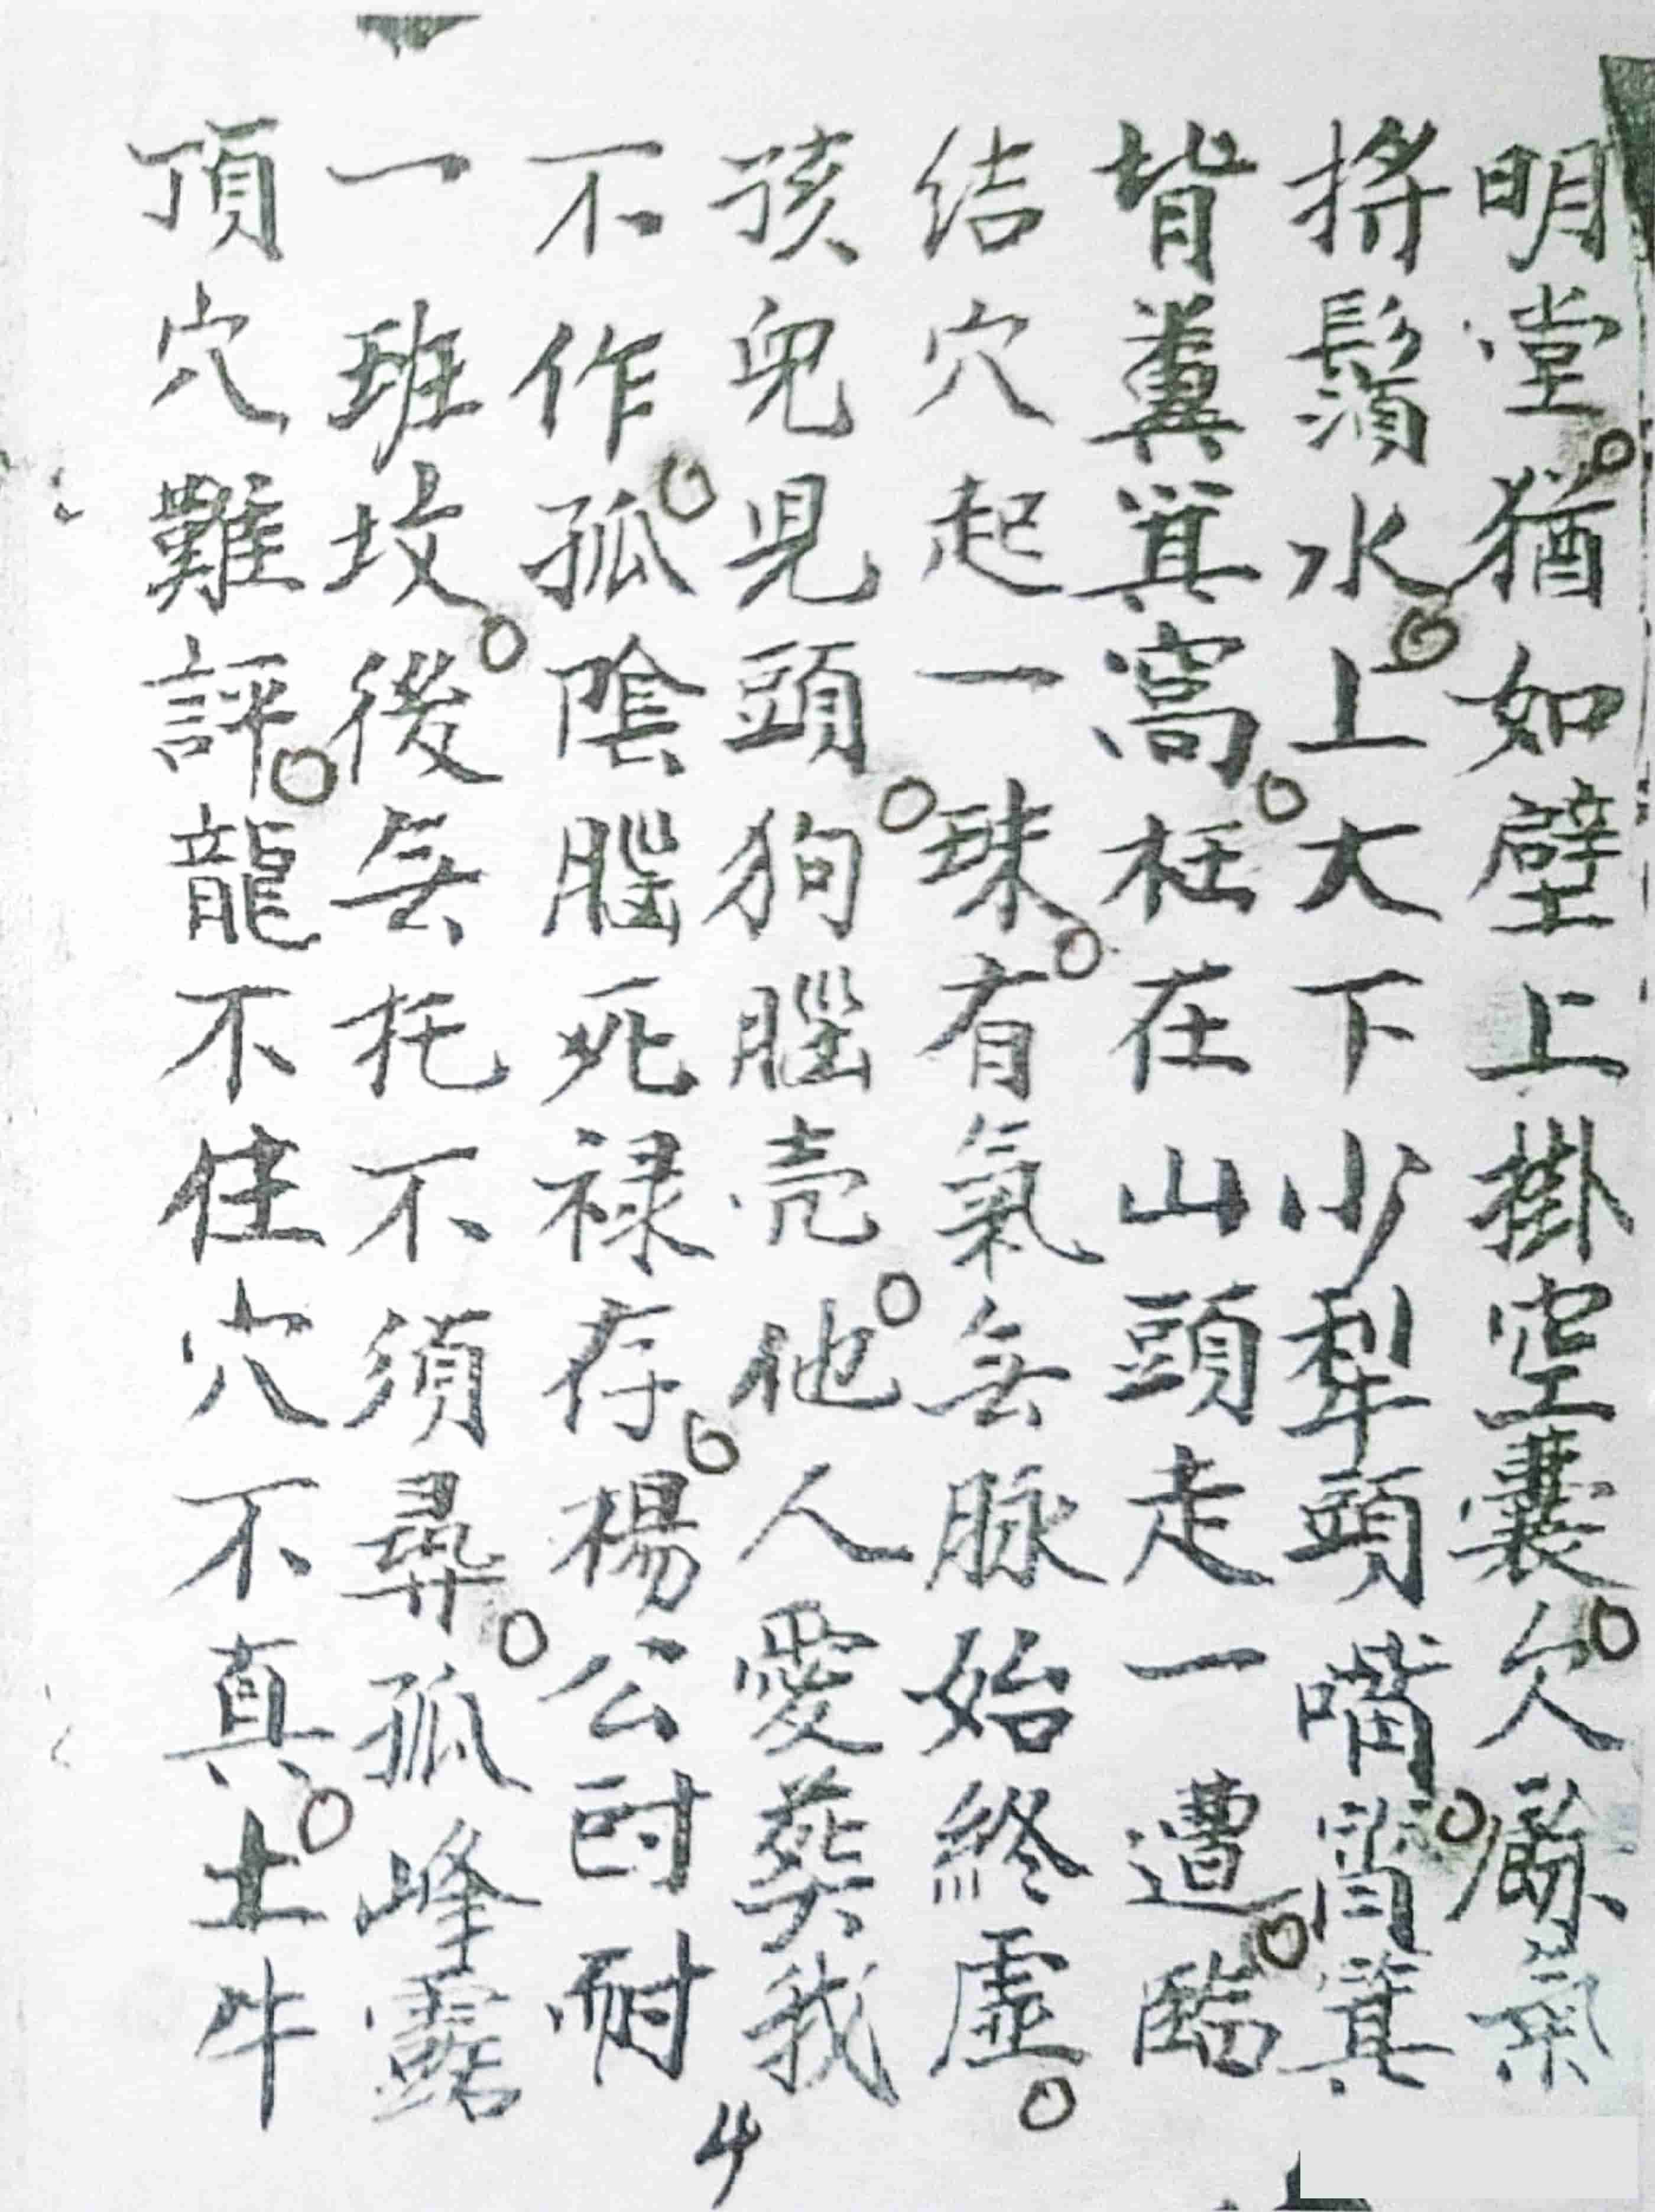 明堂。猶如壁上掛空囊。欠廕氣
將鬚水。上大下少犁頭嘴。箕
背糞箕窩。枉在山頭走一遭。臨
结穴起一珠。有氣無脉始終虛。
孩兒見頭。狗腦壳。他人愛葵我
不作。孤陰腦死禄存。楊公酎耐
一班坟。後無托不須尋。孤峰露
頂穴難評。龍不住穴不真。土牛
4